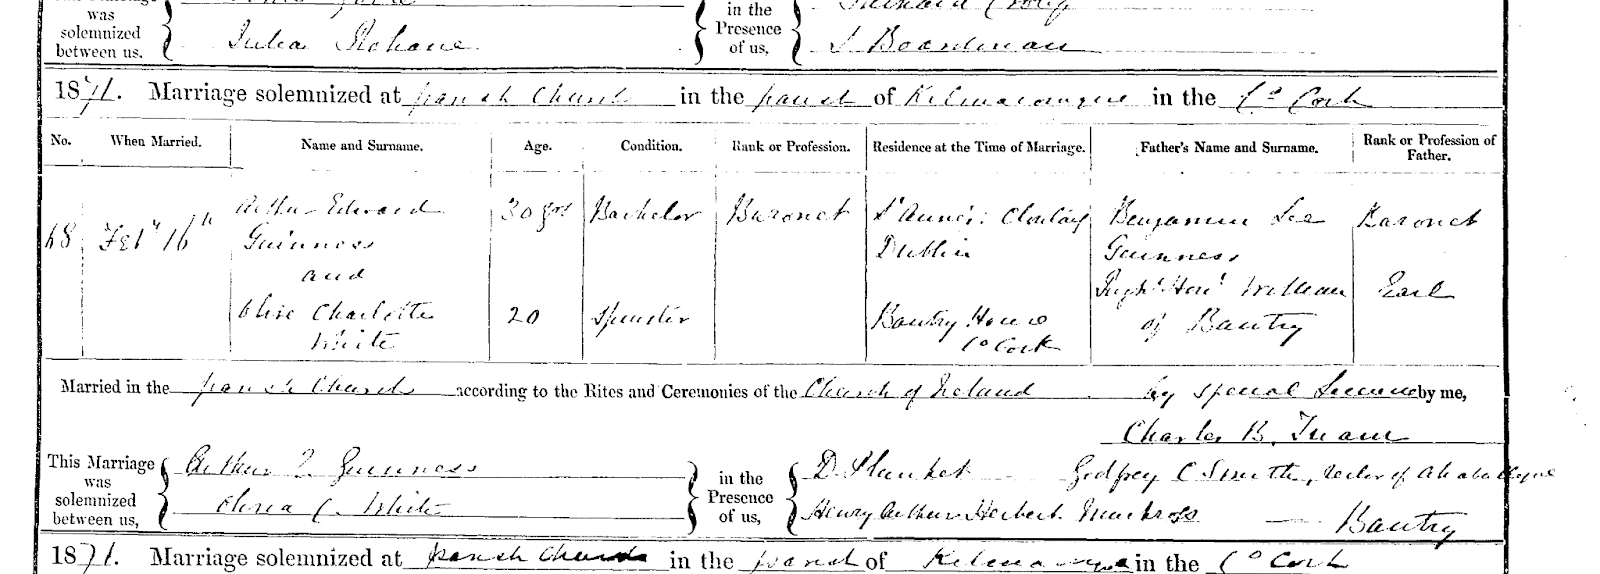 was
solemnized
between us. Julia Rohane
in the
Presence
of us, J Boardman
1871. Marriage solemnized at parish Church in the parish of Kilmacomogue in the Co Cork
No. When Married. Name and Surname. Age. Condition. Rank or Profession. Residence at the Time of Marriage. Father's Name and Surname. Rank or Profession of Father.
68 Feby 16th Arthur Edward 30 yrs Bachelor Baronet St Anne's: Clontarf Benjamin Lee Baronet
Guinness Dublin Guinness
and Right Honl William Earl
Olive Charlotte 20 Spinster Bantry House of Bantry
White Co Cork
Married in the parish Church according to the Rites and Ceremonies of the Church of Ireland by special License by me,
Charles B. Tuam
This Marriage
was
solemnized
between us, Arthur E Guinness
Olivia C. White
in the
Presence
of us, D. Plunket Godfrey C Smith, rector of
Henry Arthur Herbert Muckross Bantry
1871. Marriage solemnized at parish Church in the parish of in the Co Cork